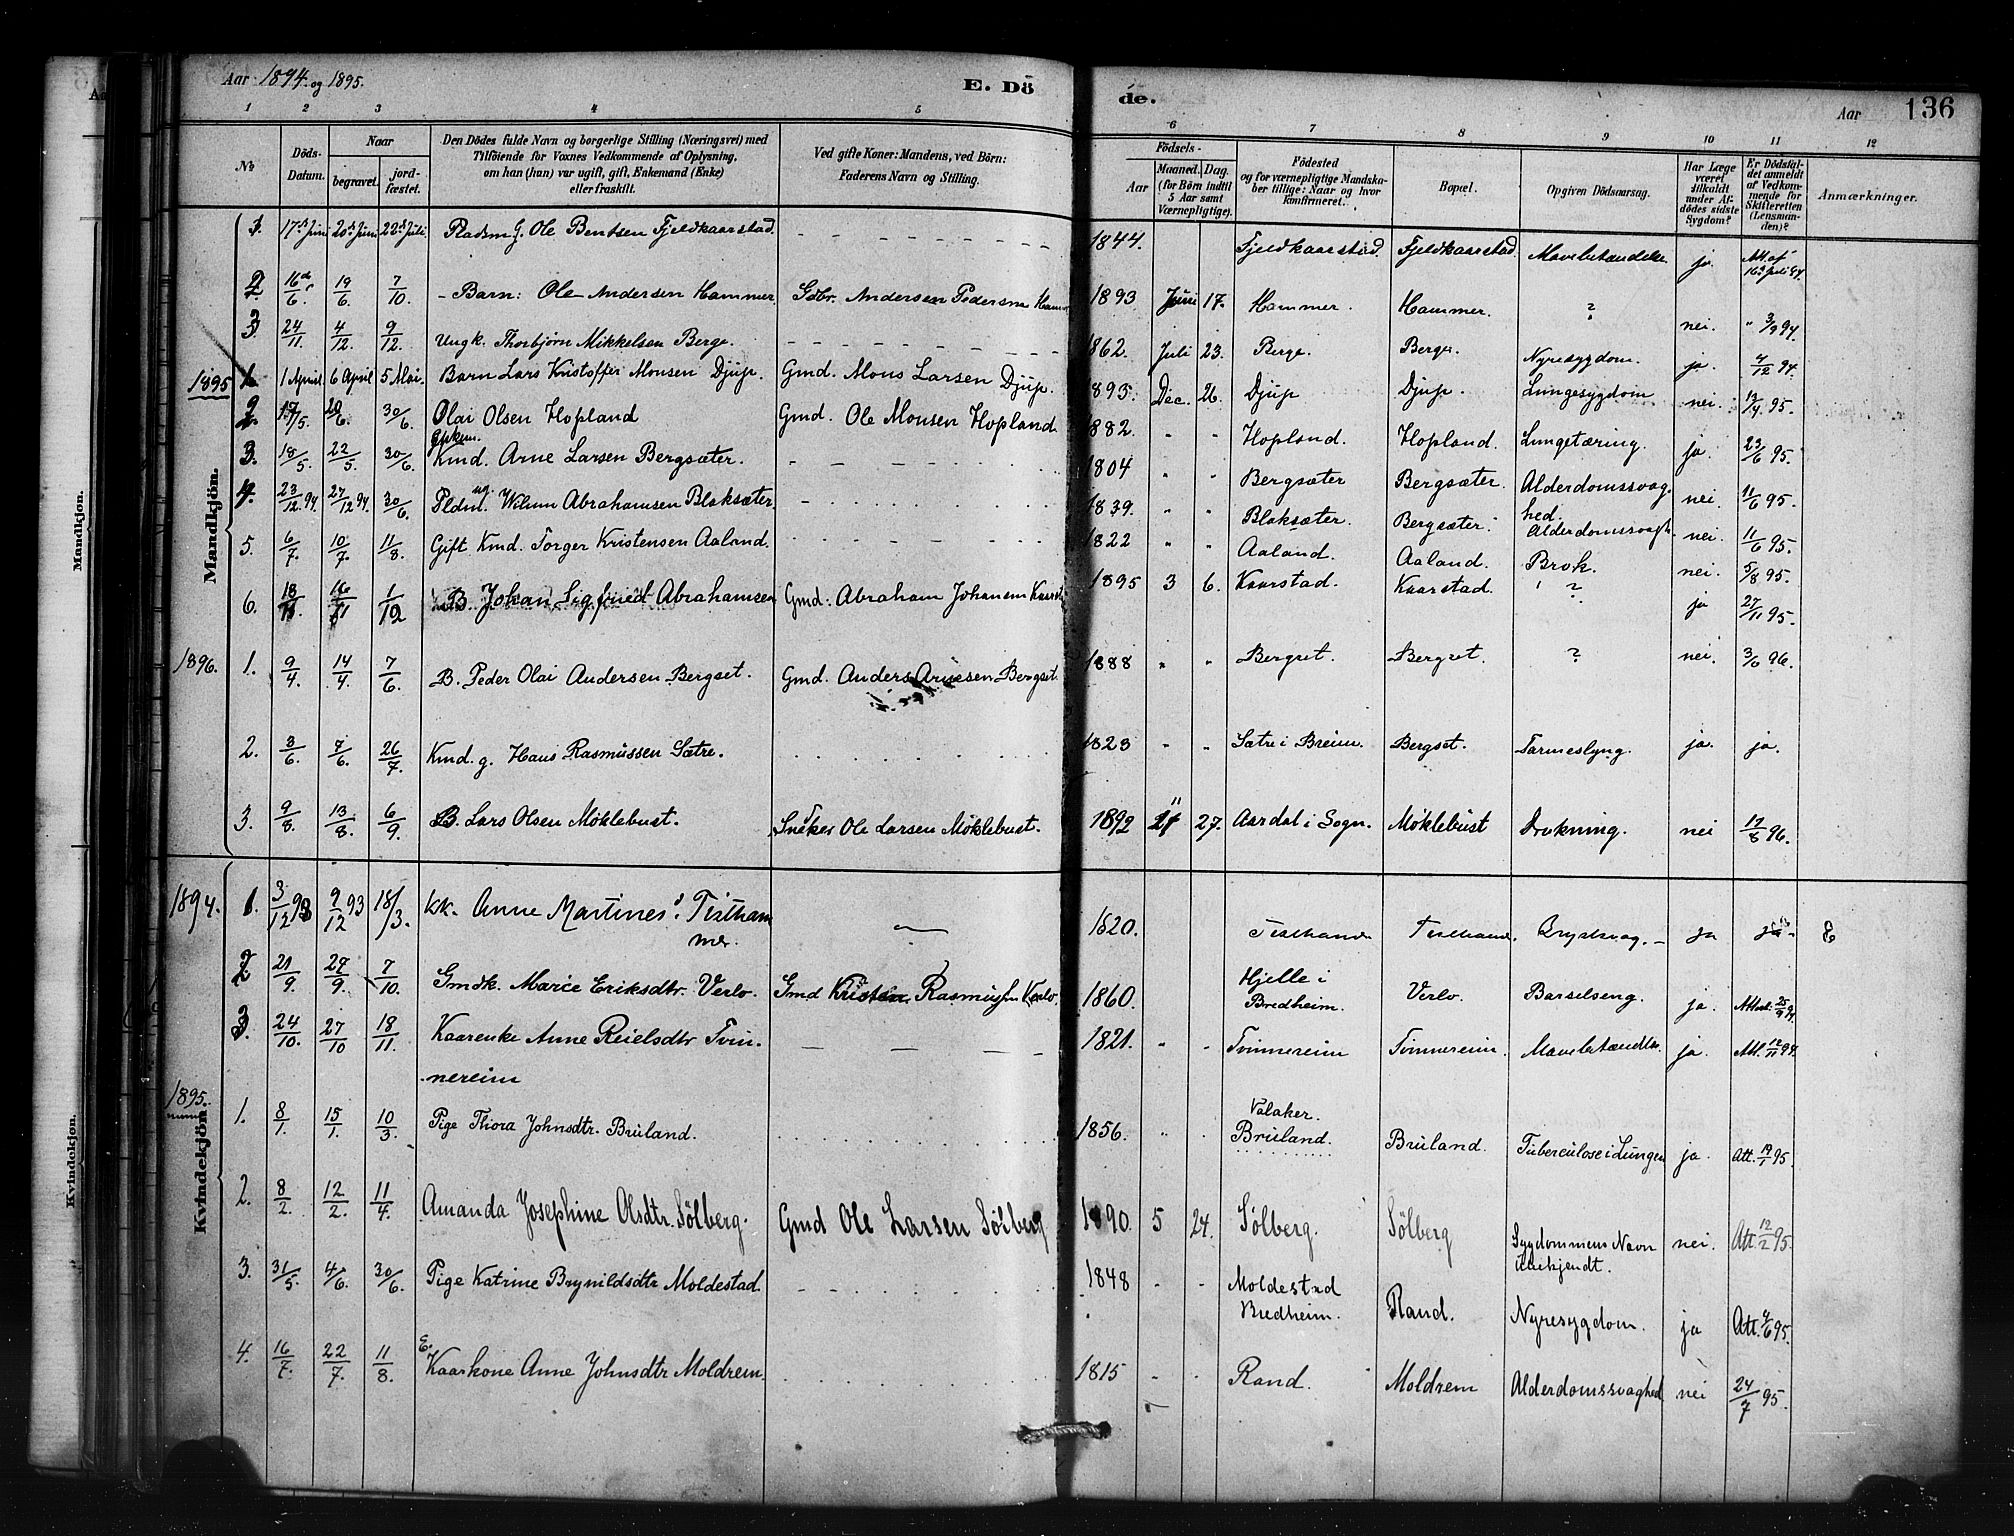 Aar 1894 og 1895.
E. Dö
de.
Aar
136
1 2 3 4 5 6 7 8 9 10 11 12
No
Döds-
Datum.
Naar
begravet.
jord-
fæstet.
Den Dödes fulde Navn og borgerlige Stilling (Næringsvei) med
Tilföiende for Voxnes Vedkommende af Oplysning,
om han (hun) var ugift, gift, Enkemand (Enke)
eller fraskilt.
Ved gifte Koner: Mandens, ved Börn:
Faderens Navn og Stilling.
Födsels-
Aar
Maaned. Dag.
(for Börn indtil
5 Aar samt
Værnepligtige).
Födested
og for værnepligtige Mandska-
ber tillige: Naar og hvor
konfirmeret.
Bopæl.
Opgiven Dödsaarsag.
Har Læge
været
tilkaldt
under Af-
dödes sidste
Sygdom?
Er Dödsfal-
det anmeldt
af Vedkom-
mende for
Skifteretten
(Lensman-
den)?
Anmærkninger.
Mandkjön.
1. 17de Juni 20de Juni 22de Juli. Pladsm. g. Ole Bentsen Fjeldkaarstad. 1844. Fjeldkaarstad. Fjeldkaarstad. Mavebetændelse ja.
2. 16/6 19/6 7/10. Barn: Ole Andersen Hammer Gbr. Andersen Pedersen Hammer 1893 Juni 17. Hammer. Hammer. ? nei. " 3/9 94.
3. 24/11. 4/12. 9/12. Ungk. Thorbjörn Mikkelsen Berge. 1862. Juli 23. Berge. Berge. Nyresygdom. ja. 4/12 94.
1895 1. 1 April 6 April 5 Mai. Barn Lars Kristoffer Monsen Djup. Gmd. Mons Larsen Djup. 1893. Dec. 26. Djup Djup. Lungesygdom nei. 12/4 95.
2. 17/5. 20/6. 30/6. Olai Olsen Hopland Gmd. Ole Monsen Hopland 1882. " " Hopland. Hopland. Lungetæring. ja. 23/6 95.
3. 18/5. 22/5. 30/6. Kmd. Arne Larsen Bergsæter. 1804 " " Bergsæter Bergsæter. Alderdomssvag-
hed. nei. 11/6 95.
4. 23/12 94. 27/12 94. 30/6. ug. Wilum Abrahamsen Blaksæter. 1839. " " Blaksæter. Bergsæter. Alderdomssvagh. nei. 11/6 95.
5. 6/7. 10/7. 11/8. Gift Kmd. Torger Kristensen Aaland. 1822 " " Aaland. Aaland. Brok. nei. 5/8 95.
6. 10/11. 16/11 1/12 B. Johan Sigfried Abrahamsen Gmd. Abraham Johansen 1895 3 6. Kaarstad. Kaarstad. ? ja 27/11 95.
1896. 1. 9/4. 14/4. 7/6. B. Peder Olai Andersen Bergset. Gmd. Anders Arnesen Bergset. 1888 " " Bergset. Bergset. ? nei. 3/6 96.
2. 3/6. 7/6. 26/7. Kmd. g. Hans Rasmussen Sætre. 1823 " " Sætre i Breim. Bergset. Tarmeslyng. ja. ja.
3. 9/8. 13/8. 6/9. B. Lars Olsen Møklebust. Snèker Ole Larsen Møklebust. 1892 11 27. Aardal i Sogn. Møklebust Drukning. nei 12/8 96.
Kvindekjön.
1894. 1. 3/12 93 9/12 93 18/3. Kk. Anne Martinesd. Tistham
mer. 1820. Tisthamr Tisthamr. Brystsvag. ja ja
2. 21/9. 27/9. 7/10. Gmdk. Marie Eriksdtr. Verlo. Gmd Kristen Rasmussen Verlo. 1860. Hjelle i
Bredheim. Verlo. Barselseng. ja. Attest. 25/9 94.
3. 24/10. 27/10 18/11. Kaarenke Anne Reielsdtr Tvin-
nereim 1821. " " Tvinnereim Tvinnereim. Mavebetændelse. ja. Att. 12/11 94.
1895. 1. 8/1. 15/1. 10/3. Pige Thora Johnsdtr. Bruland. 1856. " " Valaker.
Bruland. Bruland. Tuberculose i Lungen ja. Att. 19/1 95.
2. 8/2. 12/2. 11/4. Amanda Josephine Olsdtr. Sölberg. Gmd Ole Larsen Sölberg 1890. 5 24. Sölberg. Sölberg Sygdommens Navn
ubekjendt. nei. Att. 12/2 95.
3. 31/5. 4/6. 30/6. Pige Katrine Brynildsdtr Moldestad. 1848 - - Moldestad
Bredheim. Rand. Nyresygdom. ja Att. 4/6 95.
4. 16/7. 22/7. 11/8. E. Kaarkone Anne Johnsdtr Moldrem. 1815 - - Rand. Moldrem Alderdomssvaghed nei 24/7 95.
Mandkjøn.
Kvindekjøn.